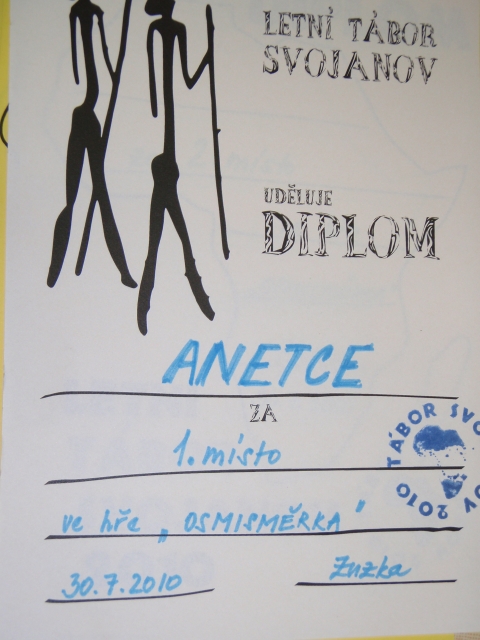 LETNÍ TÁBOR
SVOJANOV
UDĚLUJE
DIPLOM
ANETCE
ZA
1. místo
ve hře „OSMISMĚRKA"
30.7.2010
Zuzka
TÁBOR SVO OV 2010